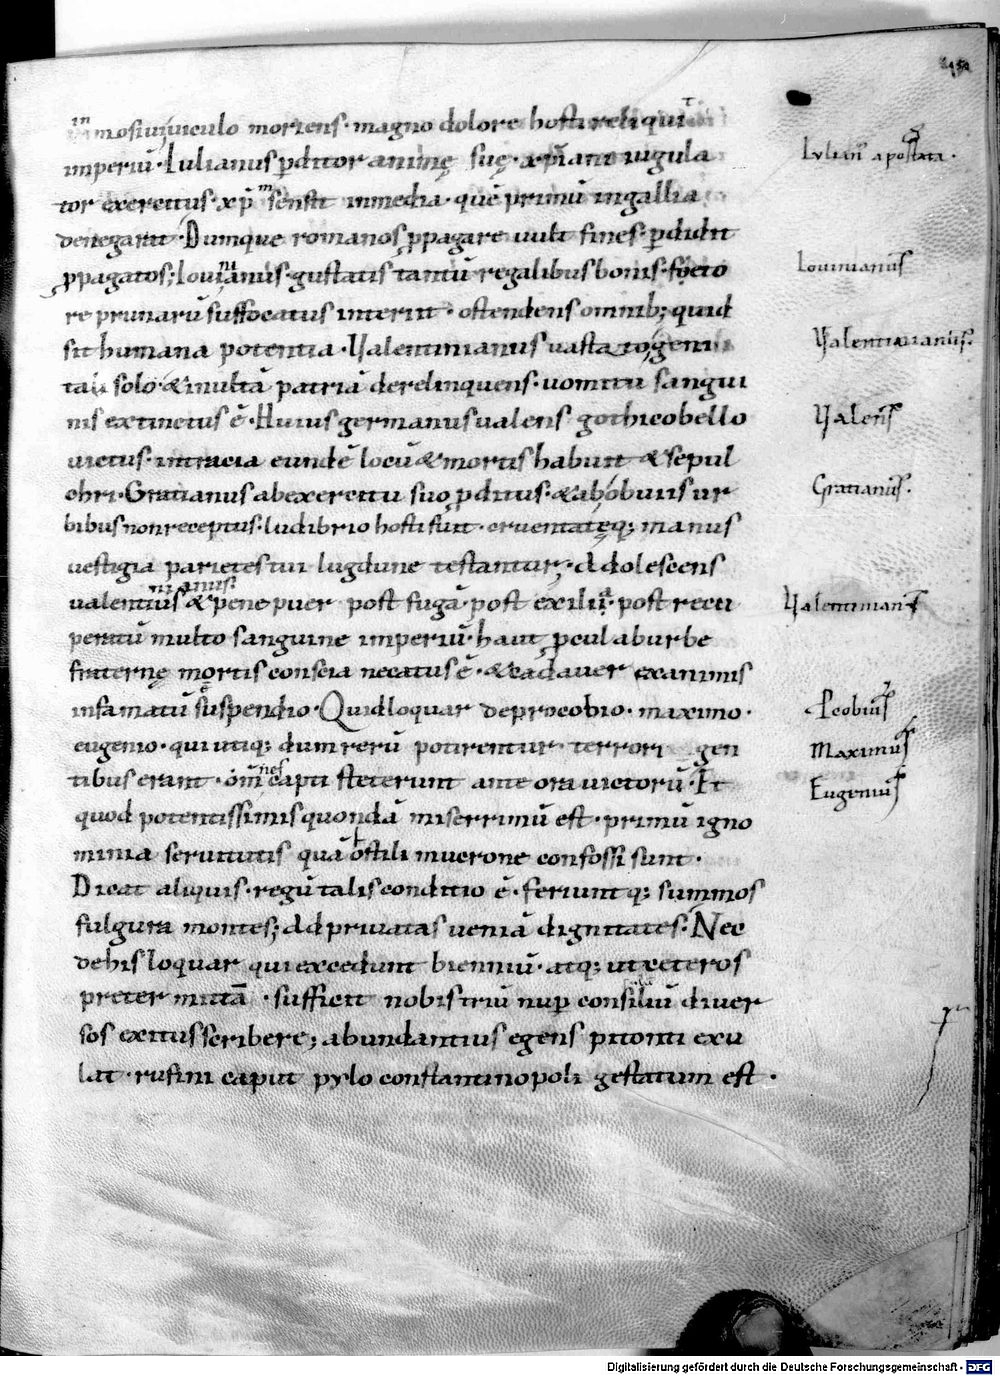 mosuiviculo moriens · magno dolore hosti reliquit
imperiū · Iulianus pditor animę suę · & xp̄iani iugula
tor exercitus · xp̄m sensit in media · quē primū in gallia
denegarat · Dumque romanos ꝓpagare uult fines · pdidit
ꝓpagatos; Iouinianus · gustatis tantū regalibus bonis · foeto
re prunarū suffocatus interiit · ostendens omnib; quid
sit humana potentia · Valentinianus uastato geni
tali solo · & inultā patriā derelinquens · uomitu sangui
nis extinctus ē · Huius germanus ualens gothico bello
uictus · intracia eundē locū & mortis habuit & sepul
chri · Gratianus ab exercitu suo ꝓditus · & ab obuiis ur
bibus non receptus · ludibrio hosti fuit · cruentatęq; manus
uestigia parietes tui lugdune testantur; Adolescens
ualentinianus & pene puer post fugā · post exilia · post recu
peratū multo sanguine imperiū · haut ꝓcul ab urbe
fraternę mortis conscia necatus ē · & cadauer exanimis
infamatū suspendio · Quid loquar de procobio · maximo ·
eugenio · qui utiq; dum rerū potirentur terrori gen
tibus erant · om̄nes capti steterunt ante ora uictorū · Et
quod potentissimis quondā miserrimū est · primū igno
minia seruitutis quā hostili mucrone confossi sunt ·
Dicat aliquis · regū talis conditio ē · feriuntq; summos
fulgura montes; Ad priuatas ueniā dignitates · Nec
de his loquar qui excedunt bienniū · atq; ut ceteros
preter mittā · sufficit nobis triū nup consiliū diuer
sos exitus scribere; abundantius egens pitonti exu
lat · rufini caput pylo constantinopoli gestatum est ·
Iulian' apostata ·
Iouinianus
Valentinianus
Valens
Gratianus ·
Valentinianus
Pcobius
Maximus
Eugenius
Digitalisierung gefördert durch die Deutsche Forschungsgemeinschaft - DFG